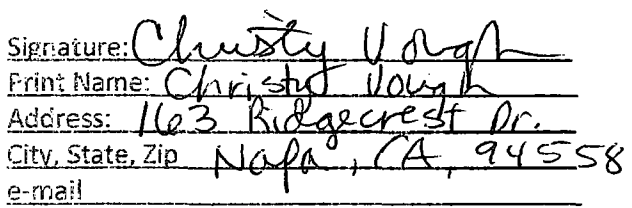 Signature: Christy Vough
Print Name: Christy Vough
Address: 163 Ridgecrest Dr.
City, State, Zip Napa, CA, 94558
e-mail